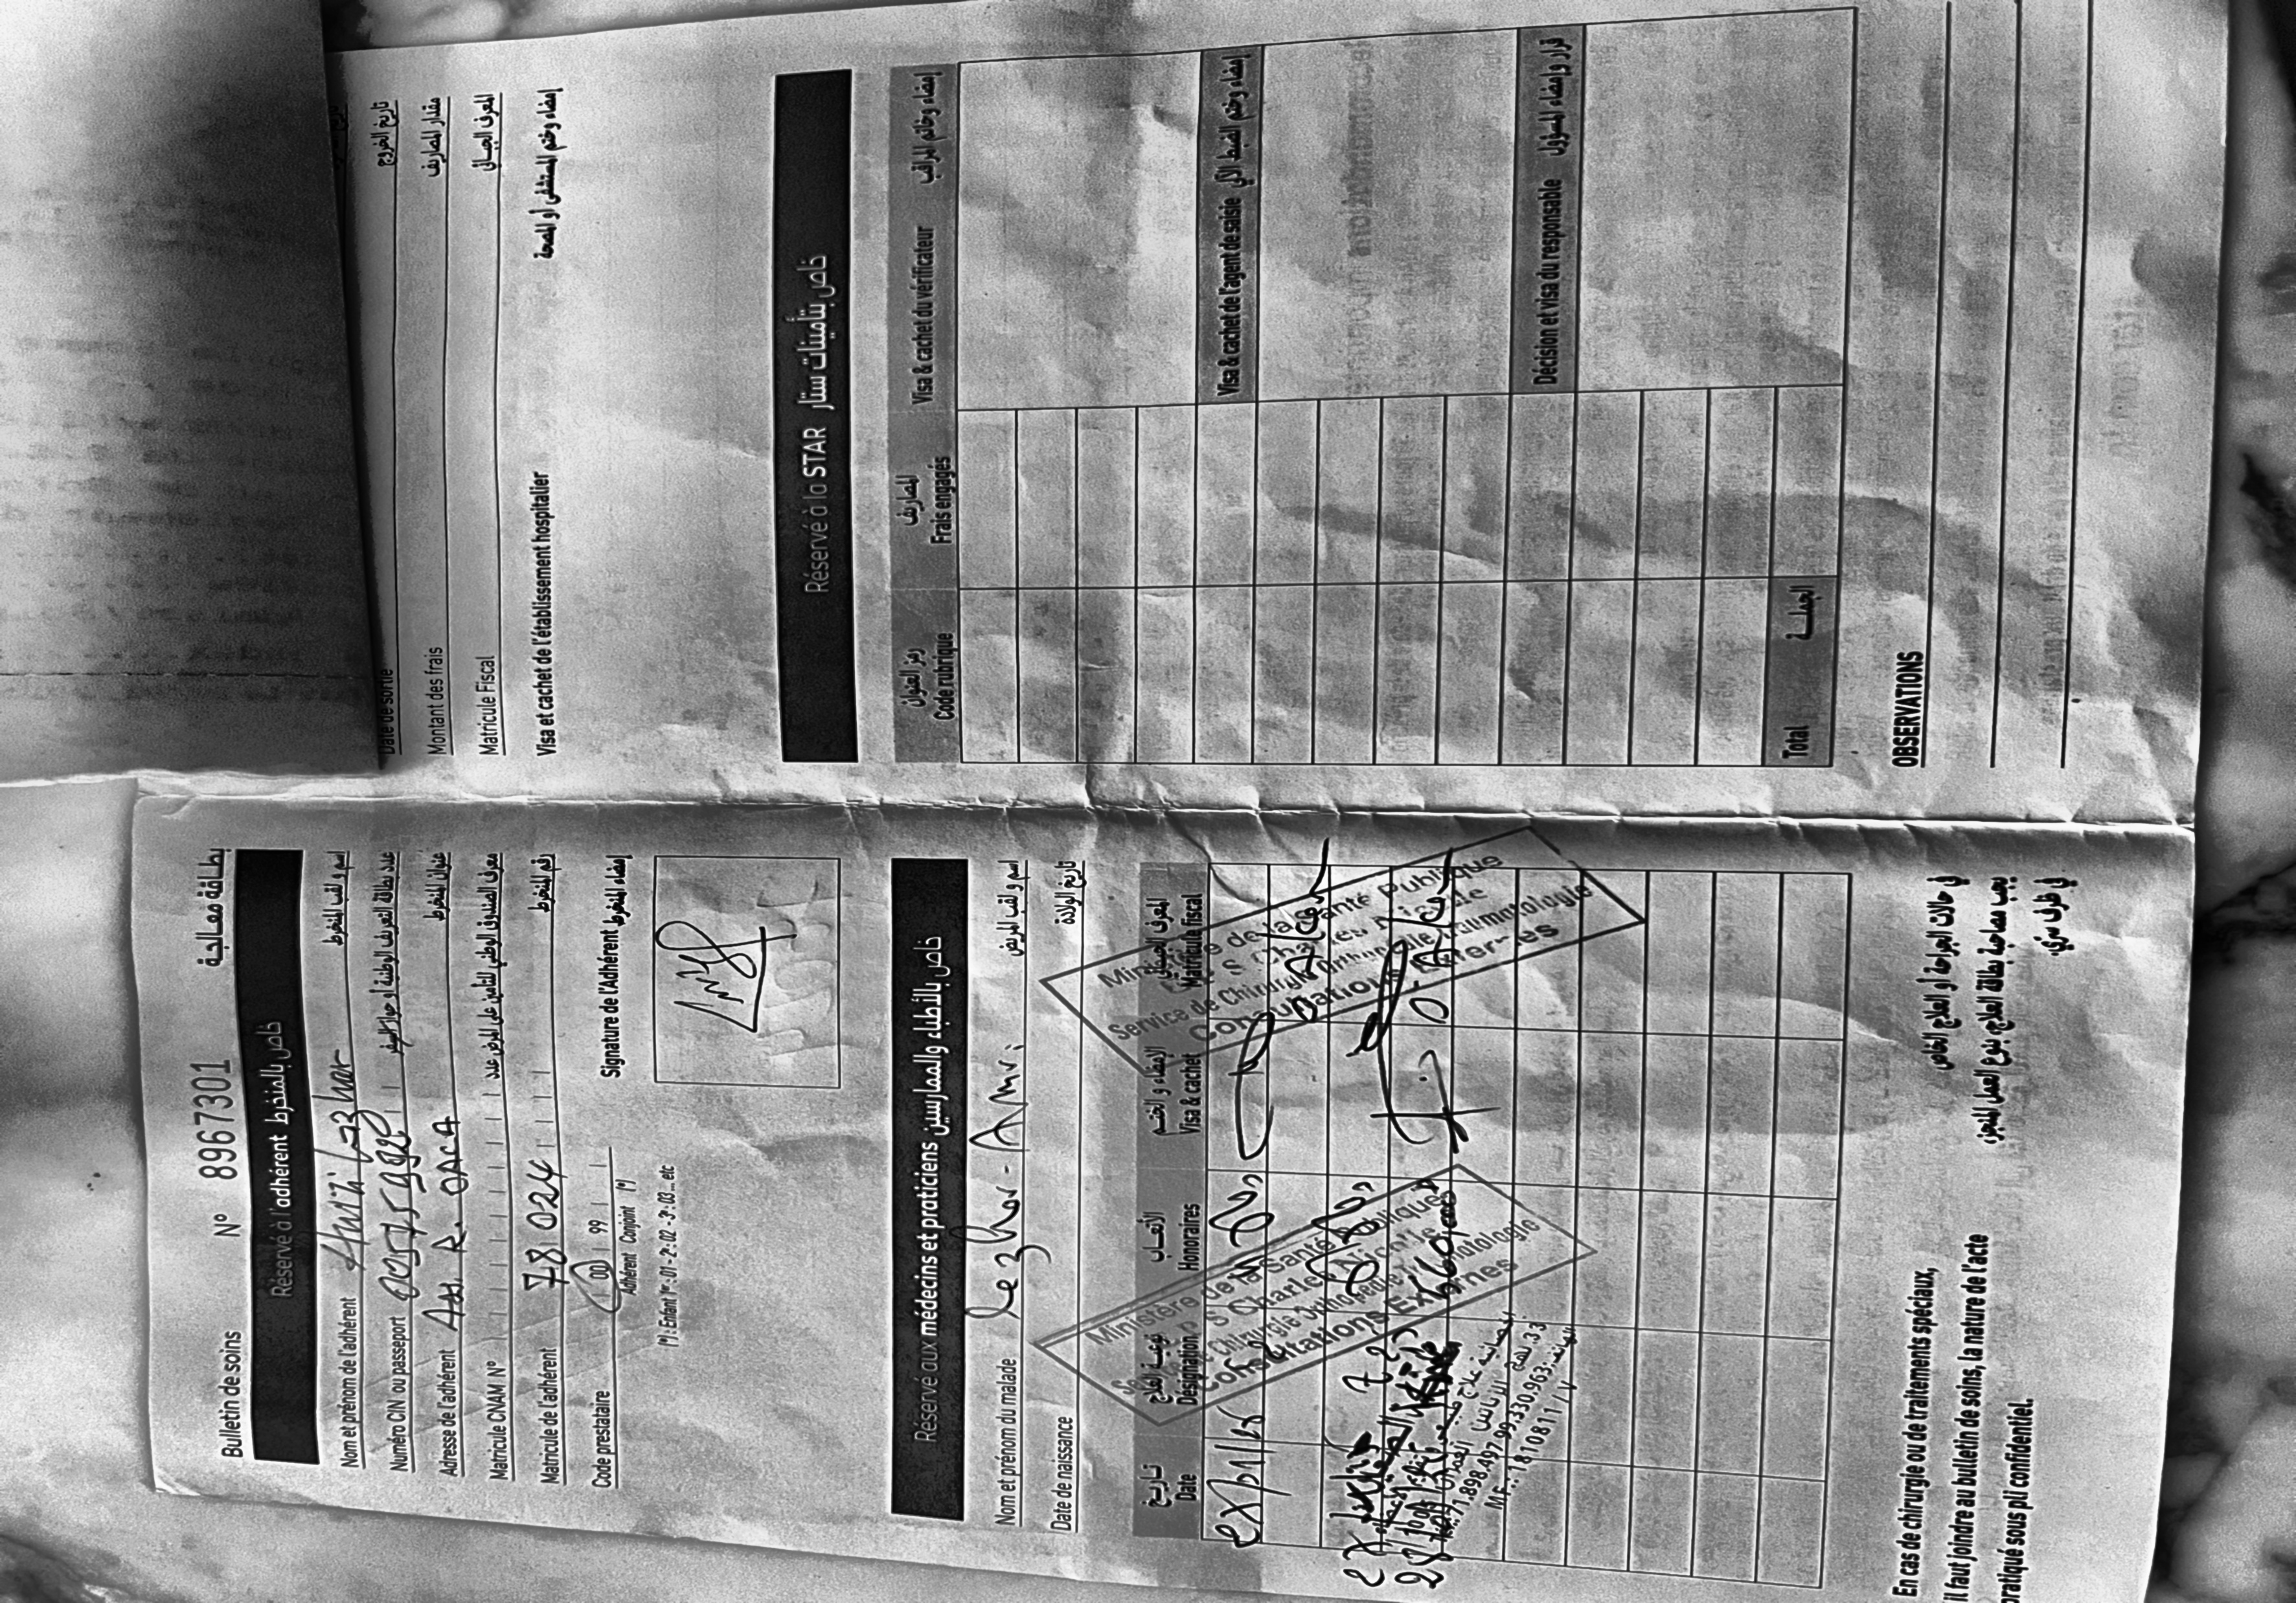 Bulletin de soins N° 8967301 بطاقة معالجة
Réservé à l'adhérent خاص بالمنخرط
Nom et prénom de l'adhérent Amri Lazhar اسم و لقب المنخرط
Numéro CIN ou passeport عدد بطاقة التعريف الوطنية أو جواز السفر
Adresse de l'adhérent R. OACA عنوان المنخرط
Matricule CNAM N° معرف الصندوق الوطني للتأمين على المرض عدد
Matricule de l'adhérent 78024 رقم المنخرط
Code prestataire 00 99
Adhérent Conjoint (*)
(*) : Enfant 1er : 01 - 2: 02 - 3: 03 ... etc
Signature de l'Adhérent إمضاء المنخرط
Réservé aux médecins et praticiens خاص بالأطباء والممارسين
Nom et prénom du malade Lazhar - Amri اسم و لقب المريض
Date de naissance تاريخ الولادة
تاريخ نوعية العلاج الأتعاب الإمضاء و الختم المعرف الجبائي
Date Designation Honoraires Visa & cachet Matricule fiscal
Ministère de la Santé Publique
Charles Nicolle
Service de Chirurgie Orthopédie Traumatologie
Consultations Externes
Ministère de la Santé Publique
Charles Nicolle
Service de Chirurgie Orthopédie Traumatologie
Consultations Externes
71.898.497 99.330.963
MF.: 1810811/V
En cas de chirurgie ou de traitements spéciaux,
il faut joindre au bulletin de soins, la nature de l'acte
pratiqué sous pli confidentiel.
في حالات الجراحة أو العلاج الخاص
يجب مصاحبة بطاقة العلاج بنوع العمل المنجز
في ظرف سري.
Date de sortie تاريخ الخروج
Montant des frais مقدار المصاريف
Matricule Fiscal المعرف الجبائي
Visa et cachet de l'établissement hospitalier إمضاء وختم المستشفى أو المصحة
Réservé à la STAR خاص بتأمينات ستار
رمز العنوان المصاريف
Code rubrique Frais engagés Visa & cachet du vérificateur إمضاء وخاتم المراقب
Visa & cachet de l'agent de saisie إمضاء وختم الضبط الآلي
Décision et visa du responsable قرار و إمضاء المسؤول
Total الجملة
OBSERVATIONS